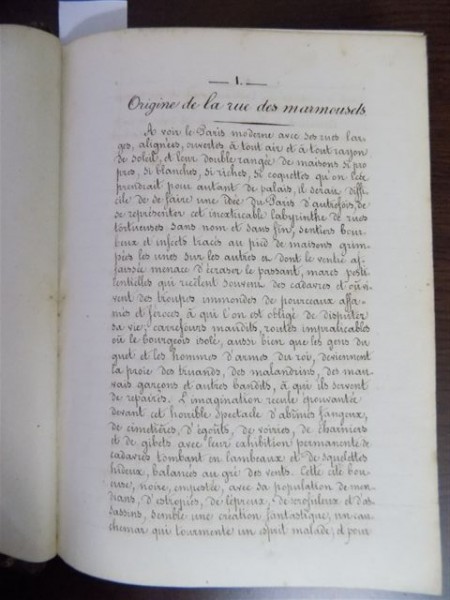 — 1. —
Origine de la rue des marmousets
A voir le Paris moderne avec ses rues lar-
ges, alignées, ouvertes à tout air et à tout rayon
de soleil, et leur double rangée de maisons si pro
pres, si blanches, si riches, si coquettes qu'on les
prendrait pour autant de palais, il serait diffi
cile de se faire une idée du Paris d'autrefois, de
se représenter cet inextricable labyrinthe de rues
tortueuses sans nom et sans fin, sentiers bour
beux et infects tracés au pied de maisons grim-
pées les unes sur les autres et dont le ventre af-
faissé menace d'écraser le passant, mares pesti
lentielles qui recèlent souvent des cadavres et où vi-
vent des troupes immondes de pourceaux affa-
més et féroces, à qui l'on est obligé de disputer
sa vie; carrefours maudits, routes impraticables
où le bourgeois isolé, aussi bien que les gens du
guet et les hommes d'armes du roi, deviennent
la proie des truands, des malandrins, des mau-
vais garçons et autres bandits, à qui ils servent
de repaires. L'imagination recule épouvantée
devant cet horrible spectacle d'abîmes fangeux,
de cimetières, d'égoûts, de voiries, de charniers
et de gibets avec leur exhibition permanente de
cadavres tombant en lambeaux et de squelettes
hideux, balancés au gré des vents. Cette cité bou-
euse, noire, empestée, avec sa population de men-
dians, d'estropiés, de lépreux, de scrofuleux et d'as
sassins, semble une création fantastique, un cau-
chemar qui tourmente un esprit malade; et pour